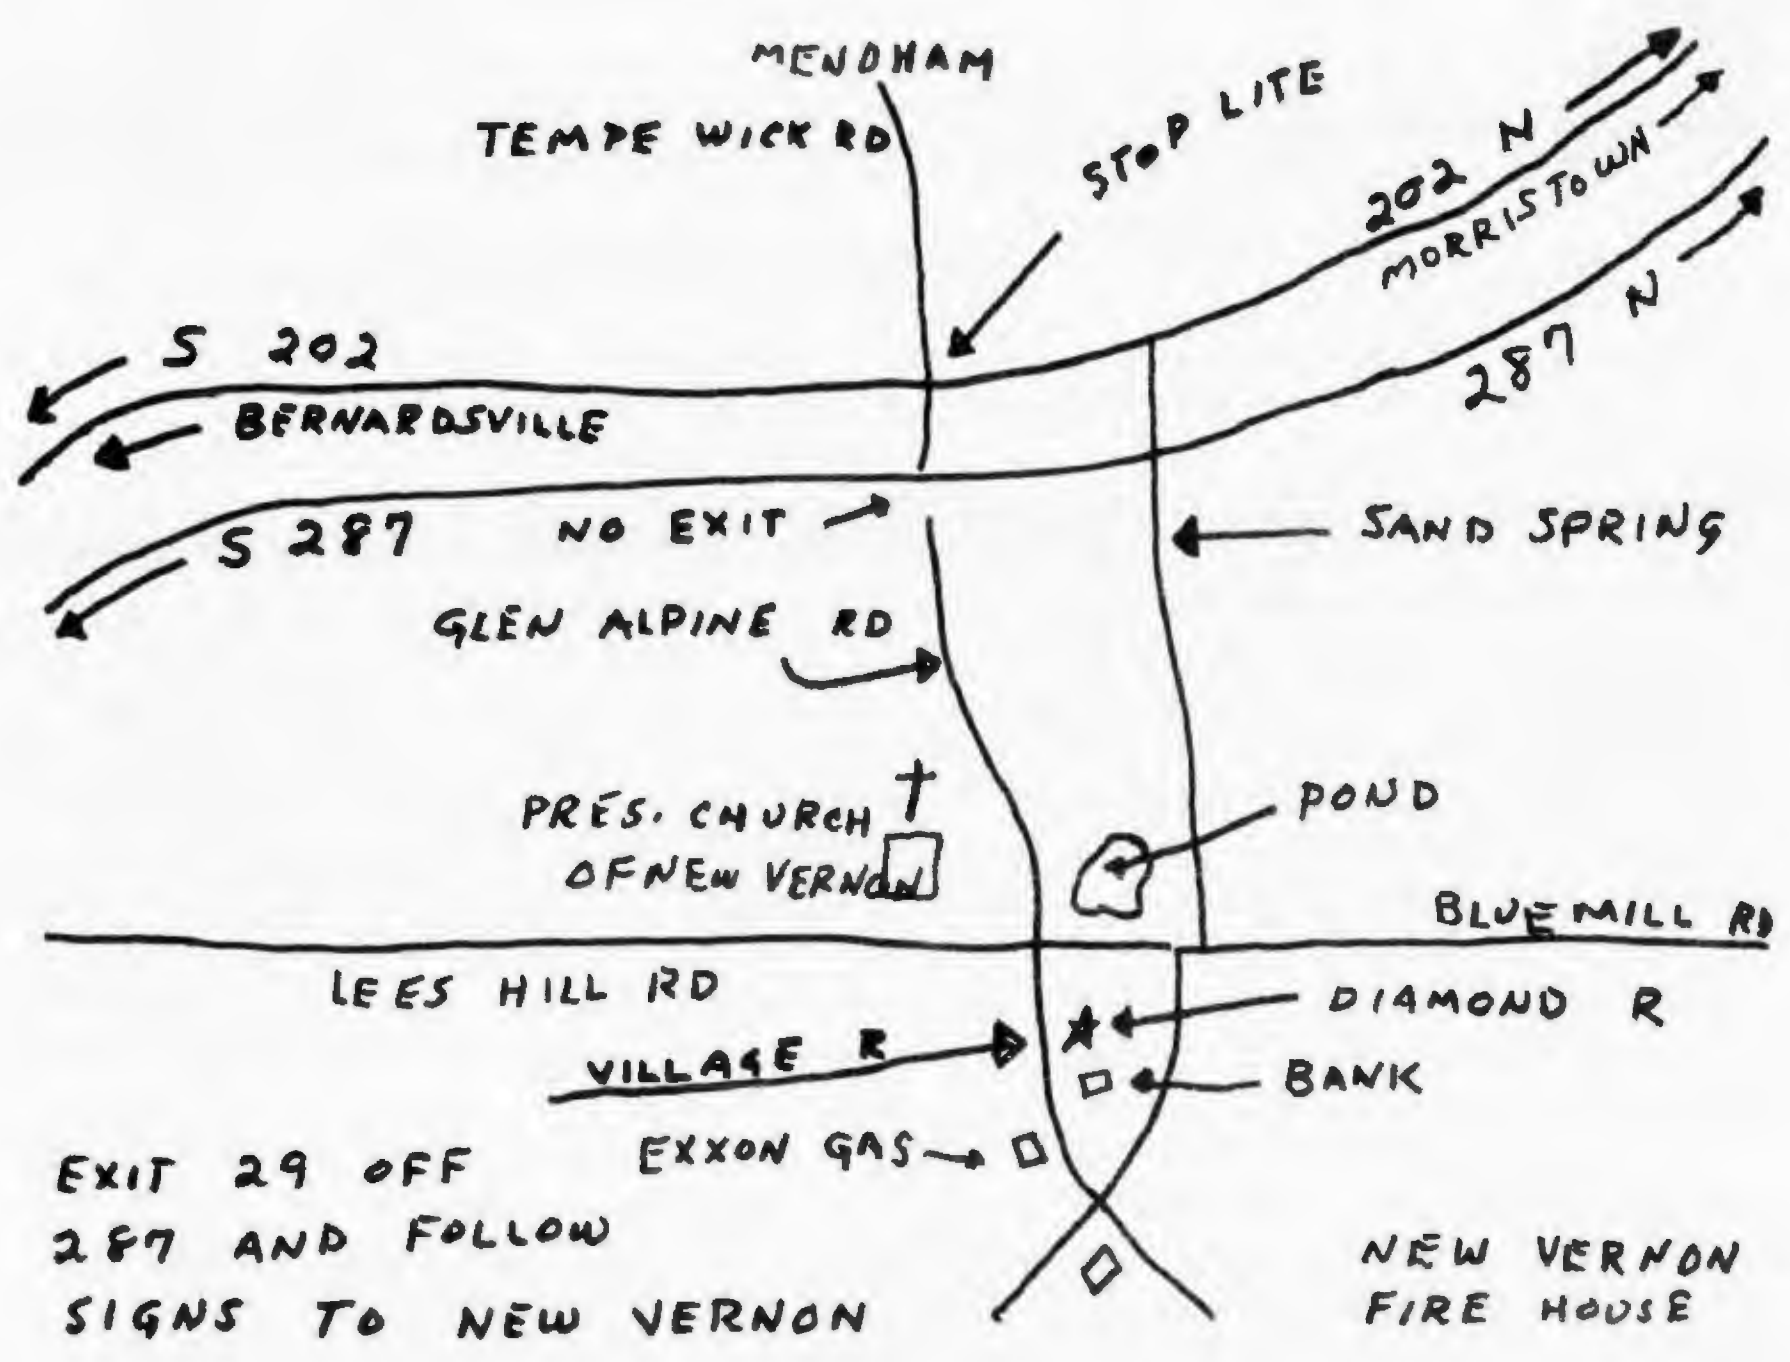 MENDHAM
TEMPE WICK RD
STOP LITE
202 N
MORRISTOWN
287 N
S 202
BERNARDSVILLE
S 287
NO EXIT
SAND SPRING
GLEN ALPINE RD
PRES. CHURCH
OF NEW VERNON
POND
BLUE MILL RD
LEES HILL RD
DIAMOND R
VILLAGE R
BANK
EXXON GAS
EXIT 29 OFF
287 AND FOLLOW
SIGNS TO NEW VERNON
NEW VERNON
FIRE HOUSE